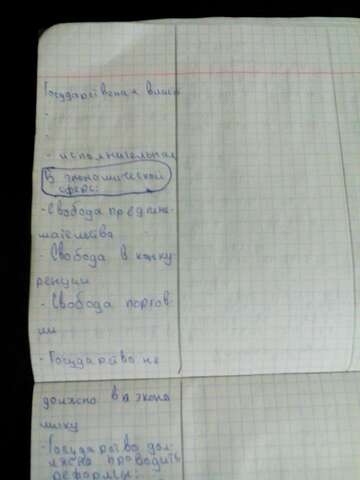 Государственая власт
-
-
- исполнительная
В экономической
сфере:
- Свобода предпри-
мательства
- Свобода в конку
ренции
- Свобода торгов-
ли
- Государство не
должно в экono
мику
- Государство дол-
жно проводить
реформы: